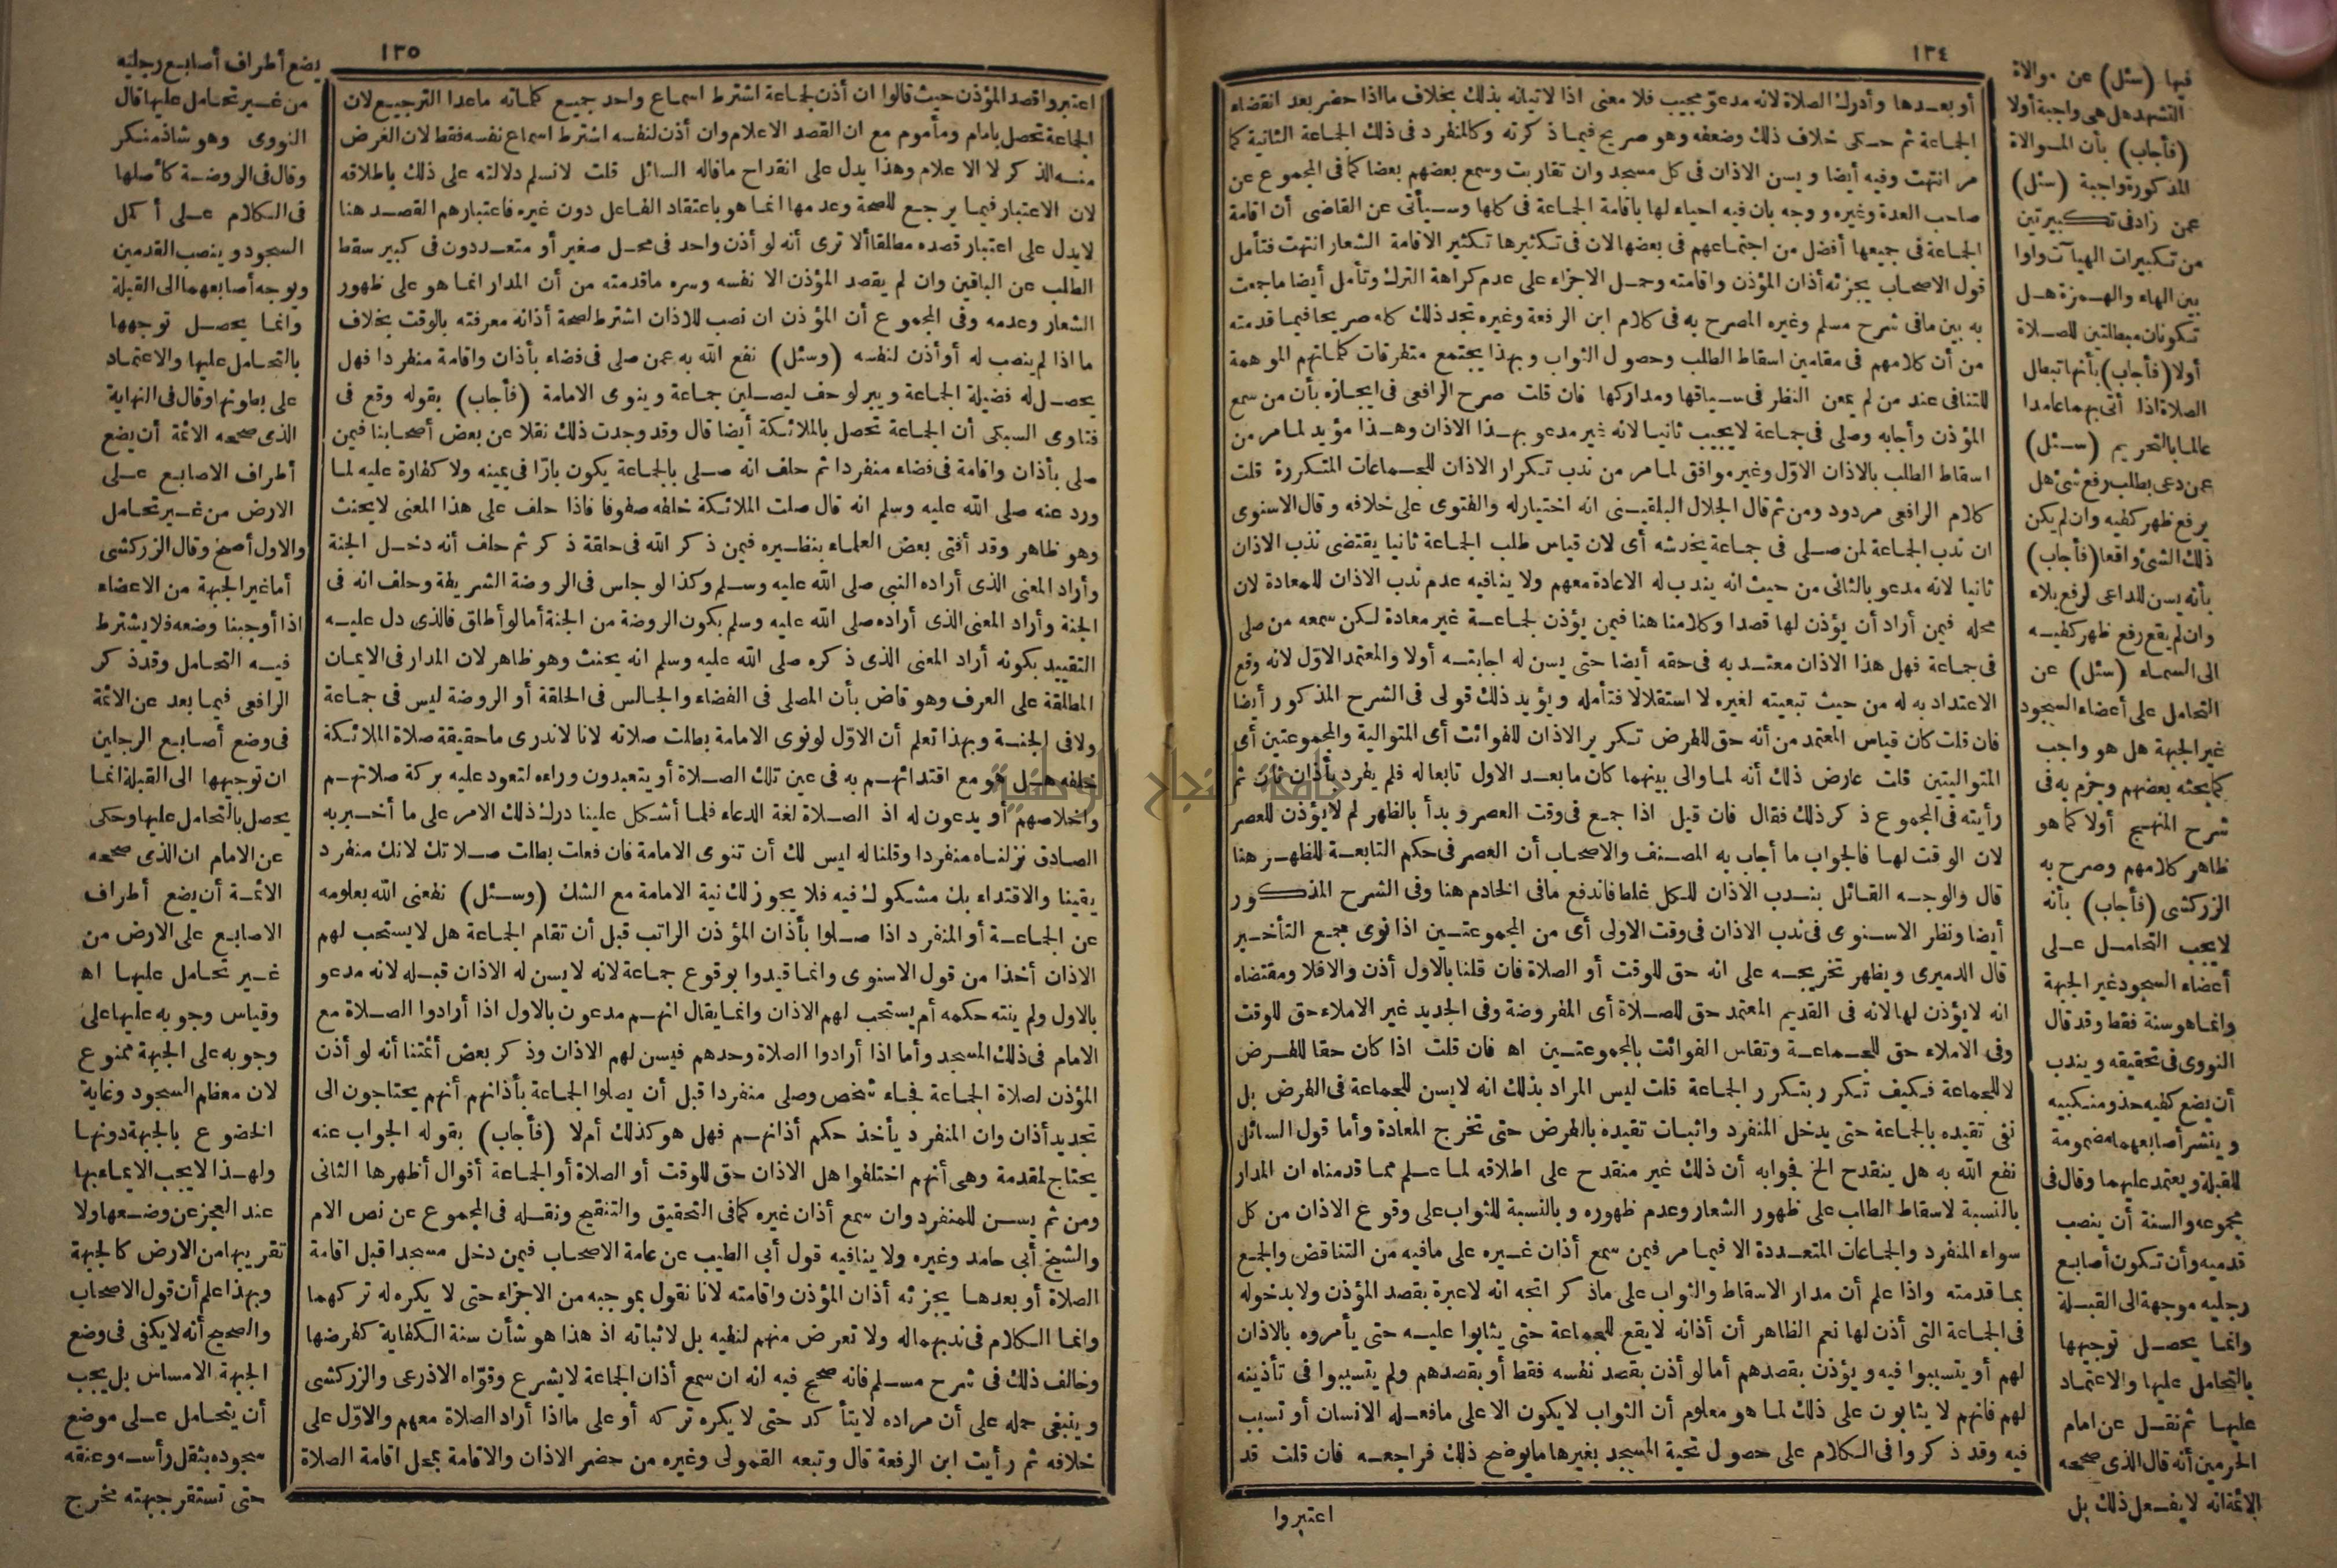 ١٣٤
أو بعدها وأدرك الصلاة لانه مدعو مجيب فلا معنى اذا لاتيانه بذلك بخلاف ما اذا حضر بعد انقضاء
الجماعة ثم حكى خلاف ذلك وضعفه وهو صريح فيما ذكرته وكالمنفرد فى ذلك الجماعة الثانية كما
مر انتهت وفيه أيضا ويسن الاذان فى كل مسجد وان تقاربت وسمع بعضهم بعضا كما فى المجموع عن
صاحب العدة وغيره ووجه بان فيه احياء لها باقامة الجماعة فى كلها وسيأتى عن القاضى أن اقامة
الجماعة فى جميعها أفضل من اجتماعهم فى بعضها لان فى تكثيرها تكثير الاقامة الشعار انتهت فتأمل
قول الاصحاب يجزئه أذان المؤذن واقامته وحمل الاجزاء على عدم كراهة الترك وتأمل أيضا ما جمعت
به بين ما فى شرح مسلم وغيره المصرح به فى كلام ابن الرفعة وغيره تجد ذلك كله صريحا فيما قدمته
من أن كلامهم فى مقامين اسقاط الطلب وحصول الثواب وبهذا يجتمع متفرقات كلماتهم الموهمة
للتنافى عند من لم يمعن النظر فى سياقها ومداركها فان قلت صرح الرافعى فى ايجازه بأن من سمع
المؤذن وأجابه وصلى فى جماعة لا يجيب ثانيا لانه غير مدعو بهذا الاذان وهذا مؤيد لما مر من
اسقاط الطلب بالاذان الاوّل وغير موافق لما مر من ندب تكرار الاذان للجماعات المتكررة قلت
كلام الرافعى مردود ومن ثم قال الجلال البلقينى انه اختيار له والفتوى على خلافه وقال الاسنوى
ان ندب الجماعة لمن صلى فى جماعة يخدشه أى لان قياس طلب الجماعة ثانيا يقتضى ندب الاذان
ثانيا لانه مدعو بالثانى من حيث انه يندب له الاعادة معهم ولا ينافيه عدم ندب الاذان للمعادة لان
محله فيمن أراد أن يؤذن لها قصدا وكلامنا هنا فيمن يؤذن لجماعة غير معادة لكن سمعه من صلى
فى جماعة فهل هذا الاذان معتد به فى حقه أيضا حتى يسن له اجابته أولا والمعتمد الاوّل لانه وقع
الاعتداد به له من حيث تبعيته لغيره لا استقلالا فتأمله ويؤيد ذلك قولى فى الشرح المذكور أيضا
فان قلت كان قياس المعتمد من أنه حق للفرض تكرير الاذان للفوائت أى المتوالية والمجموعتين أى
المتواليتين قلت عارض ذلك أنه لما والى بينهما كان ما بعد الاول تابعا له فلم يفرد بأذان ثان ثم
رأيته فى المجموع ذكر ذلك فقال فان قيل اذا جمع فى وقت العصر وبدأ بالظهر لم لا يؤذن للعصر
لان الوقت لها فالجواب ما أجاب به المصنف والاصحاب أن العصر فى حكم التابعة للظهر هنا
قال والوجه القائل بندب الاذان للكل غلط فاندفع ما فى الخادم هنا وفى الشرح المذكور
أيضا ونظر الاسنوى فى ندب الاذان فى وقت الاولى أى من المجموعتين اذا نوى جمع التأخير
قال الدميرى ويظهر تخريجه على انه حق للوقت أو الصلاة فان قلنا بالاول أذن والا فلا ومقتضاه
انه لا يؤذن لها لانه فى القديم المعتمد حق للصلاة أى المفروضة وفى الجديد غير الاملاء حق للوقت
وفى الاملاء حق للجماعة وتقاس الفوائت بالمجموعتين اه فان قلت اذا كان حقا للفرض
لا للجماعة فكيف تكرر بتكرر الجماعة قلت ليس المراد بذلك انه لا يسن للجماعة فى الفرض بل
نفى تقيده بالجماعة حتى يدخل المنفرد واثبات تقيده بالفرض حتى تخرج المعادة وأما قول السائل
نفع الله به هل ينقدح الخ فجوابه أن ذلك غير منقدح على اطلاقه لما علم مما قدمناه ان المدار
بالنسبة لاسقاط الطلب على ظهور الشعار وعدم ظهوره وبالنسبة للثواب على وقوع الاذان من كل
سواء المنفرد والجماعات المتعددة الا فيما مر فيمن سمع أذان غيره على ما فيه من التناقض والجمع
بما قدمته واذا علم أن مدار الاسقاط والثواب على ماذكر اتجه انه لا عبرة بقصد المؤذن ولا بدخوله
فى الجماعة التى أذن لها نعم الظاهر أن أذانه لا يقع للجماعة حتى يثابوا عليه حتى يأمروه بالاذان
لهم أو يتسببوا فيه ويؤذن بقصدهم أما لو أذن بقصد نفسه فقط أو بقصدهم ولم يتسببوا فى تأذينه
لهم فانهم لا يثابون على ذلك لما هو معلوم أن الثواب لا يكون الا على ما فعله الانسان أو تسبب
فيه وقد ذكروا فى الكلام على حصول تحية المسجد بغيرها ما يوضح ذلك فراجعه فان قلت قد
اعتبروا
فيها (سئل) عن موالاة
التشهد هل هى واجبة أولا
(فأجاب) بأن الموالاة
المذكورة واجبة (سئل)
عمن زاد فى تكبيرتين
من تكبيرات الهيآت واوا
بين الهاء والهمزة هل
تكونان مبطلتين للصلاة
أولا (فأجاب) بأنها تبطل
الصلاة اذا أتى بهما عامدا
عالما بالتحريم (سئل)
عمن دعى بطلب رفع شئ هل
يرفع ظهر كفيه وان لم يكن
ذلك الشئ واقعا (فأجاب)
بأنه يسن للداعى لرفع بلاء
وان لم يقع رفع ظهر كفيه
الى السماء (سئل) عن
التحامل على أعضاء السجود
غير الجبهة هل هو واجب
كما بحثه بعضهم وجزم به فى
شرح المنهج أولا كما هو
ظاهر كلامهم وصرح به
الزركشى (فأجاب) بأنه
لا يجب التحامل على
أعضاء السجود غير الجبهة
وانما هو سنة فقط وقد قال
النووى فى تحقيقه ويندب
أن يضع كفيه حذو منكبيه
وينشر أصابعهما مضمومة
للقبلة ويعتمد عليهما وقال فى
مجموعه والسنة أن ينصب
قدميه وأن تكون أصابع
رجليه موجهة الى القبلة
وانما يحصل توجيهها
بالتحامل عليها والاعتماد
عليها ثم نقل عن امام
الحرمين أنه قال الذى صححه
الائمة انه لا يفعل ذلك بل
١٣٥
اعتبروا قصد المؤذن حيث قالوا ان أذن لجماعة اشترط اسماع واحد جميع كلماته ماعدا الترجيع لان
الجماعة تحصل بامام ومأموم مع ان القصد الاعلام وان أذن لنفسه اشترط اسماع نفسه فقط لان الغرض
منه الذكر لا الاعلام وهذا يدل على انقداح ما قاله السائل قلت لا نسلم دلالته على ذلك باطلاقه
لان الاعتبار فيما يرجع للصحة وعدمها انما هو باعتقاد الفاعل دون غيره فاعتبارهم القصد هنا
لا يدل على اعتبار قصده مطلقا ألا ترى أنه لو أذن واحد فى محل صغير أو متعددون فى كبير سقط
الطلب عن الباقين وان لم يقصد المؤذن الا نفسه وسره ما قدمته من أن المدار انما هو على ظهور
الشعار وعدمه وفى المجموع أن المؤذن ان نصب للاذان اشترط لصحة أذانه معرفته بالوقت بخلاف
ما اذا لم ينصب له أو أذن لنفسه (وسئل) نفع الله به عمن صلى فى فضاء بأذان واقامة منفردا فهل
يحصل له فضيلة الجماعة ويبر لو حلف ليصلين جماعة وينوى الامامة (فأجاب) بقوله وقع فى
فتاوى السبكى أن الجماعة تحصل بالملائكة أيضا قال وقد وجدت ذلك نقلا عن بعض أصحابنا فيمن
صلى بأذان واقامة فى فضاء منفردا ثم حلف انه صلى بالجماعة يكون بارّا فى يمينه ولا كفارة عليه لما
ورد عنه صلى الله عليه وسلم انه قال صلت الملائكة خلفه صفوفا فاذا حلف على هذا المعنى لا يحنث
وهو ظاهر وقد أفتى بعض العلماء بنظيره فيمن ذكر الله فى حلقة ذكر ثم حلف أنه دخل الجنة
وأراد المعنى الذى أراده النبى صلى الله عليه وسلم وكذا لو جلس فى الروضة الشريفة وحلف انه فى
الجنة وأراد المعنى الذى أراده صلى الله عليه وسلم بكون الروضة من الجنة أما لو أطلق فالذى دل عليه
التقييد بكونه أراد المعنى الذى ذكره صلى الله عليه وسلم انه يحنث وهو ظاهر لان المدار فى الايمان
المطلقة على العرف وهو قاض بأن المصلى فى الفضاء والجالس فى الحلقة أو الروضة ليس فى جماعة
ولا فى الجنة وبهذا تعلم أن الاوّل لو نوى الامامة بطلت صلاته لانا لا ندرى ما حقيقة صلاة الملائكة
خلفه هل هو مع اقتدائهم به فى عين تلك الصلاة أو يتعبدون وراءه لتعود عليه بركة صلاتهم
واخلاصهم أو يدعون له اذ الصلاة لغة الدعاء فلما أشكل علينا درك ذلك الامر على ما أخبر به
الصادق نزلناه منفردا وقلنا له ليس لك أن تنوى الامامة فان فعلت بطلت صلاتك لانك منفرد
يقينا والاقتداء بك مشكوك فيه فلا يجوز لك نية الامامة مع الشك (وسئل) نفعنى الله بعلومه
عن الجماعة أو المنفرد اذا صلوا بأذان المؤذن الراتب قبل أن تقام الجماعة هل لا يستحب لهم
الاذان أخذا من قول الاسنوى وانما قيدوا بوقوع جماعة لانه لا يسن له الاذان قبله لانه مدعو
بالاول ولم ينته حكمه أم يستحب لهم الاذان وانما يقال انهم مدعون بالاول اذا أرادوا الصلاة مع
الامام فى ذلك المسجد وأما اذا أرادوا الصلاة وحدهم فيسن لهم الاذان وذكر بعض أئمتنا أنه لو أذن
المؤذن لصلاة الجماعة فجاء شخص وصلى منفردا قبل أن يصلوا الجماعة بأذانهم أنهم يحتاجون الى
تجديد أذان وان المنفرد يأخذ حكم أذانهم فهل هو كذلك أم لا (فأجاب) بقوله الجواب عنه
يحتاج لمقدمة وهى أنهم اختلفوا هل الاذان حق للوقت أو الصلاة أو الجماعة أقوال أظهرها الثانى
ومن ثم يسن للمنفرد وان سمع أذان غيره كما فى التحقيق والتنقيح ونقله فى المجموع عن نص الام
والشيخ أبى حامد وغيره ولا ينافيه قول أبى الطيب عن عامة الاصحاب فيمن دخل مسجدا قبل اقامة
الصلاة أو بعدها يجزئه أذان المؤذن واقامته لانا نقول بموجبه من الاجزاء حتى لا يكره له تركهما
وانما الكلام فى ندبهما له ولا تعرض منهم لنفيه بل لاثباته اذ هذا هو شأن سنة الكفاية كفرضها
وخالف ذلك فى شرح مسلم فانه صحح فيه انه ان سمع أذان الجماعة لا يشرع وقوّاه الاذرعى والزركشى
وينبغى حمله على أن مراده لا يتأكد حتى لا يكره تركه أو على ما اذا أراد الصلاة معهم والاوّل على
خلافه ثم رأيت ابن الرفعة قال وتبعه القمولى وغيره من حضر الاذان والاقامة بمحل اقامة الصلاة
يضع أطراف أصابع رجليه
من غير تحامل عليها قال
النووى وهو شاذ منكر
وقال فى الروضة كأصلها
فى الكلام على أكمل
السجود وينصب القدمين
ويوجه أصابعهما الى القبلة
وانما يحصل توجهها
بالتحامل عليها والاعتماد
على بطونها وقال فى النهاية
الذى صححه الائمة أن يضع
أطراف الاصابع على
الارض من غير تحامل
والاول أصح وقال الزركشى
أما غير الجبهة من الاعضاء
اذا أوجبنا وضعه فلا يشترط
فيه التحامل وقد ذكر
الرافعى فيما بعد عن الائمة
فى وضع أصابع الرجلين
ان توجيهها الى القبلة انما
يحصل بالتحامل عليها وحكى
عن الامام ان الذى صححه
الائمة أن يضع أطراف
الاصابع على الارض من
غير تحامل عليها اه
وقياس وجوبه عليها على
وجوبه على الجبهة ممنوع
لان معظم السجود وغاية
الخضوع بالجبهة دونها
ولهذا لا يجب الايماء بها
عند العجز عن وضعها ولا
تقريبها من الارض كالجبهة
وبهذا علم أن قول الاصحاب
والصحيح أنه لا يكفى فى وضع
الجبهة الامساس بل يجب
أن يتحامل على موضع
سجوده بثقل رأسه وعنقه
حتى تستقر جبهته مخرج
جامعة النجاح الوطنية